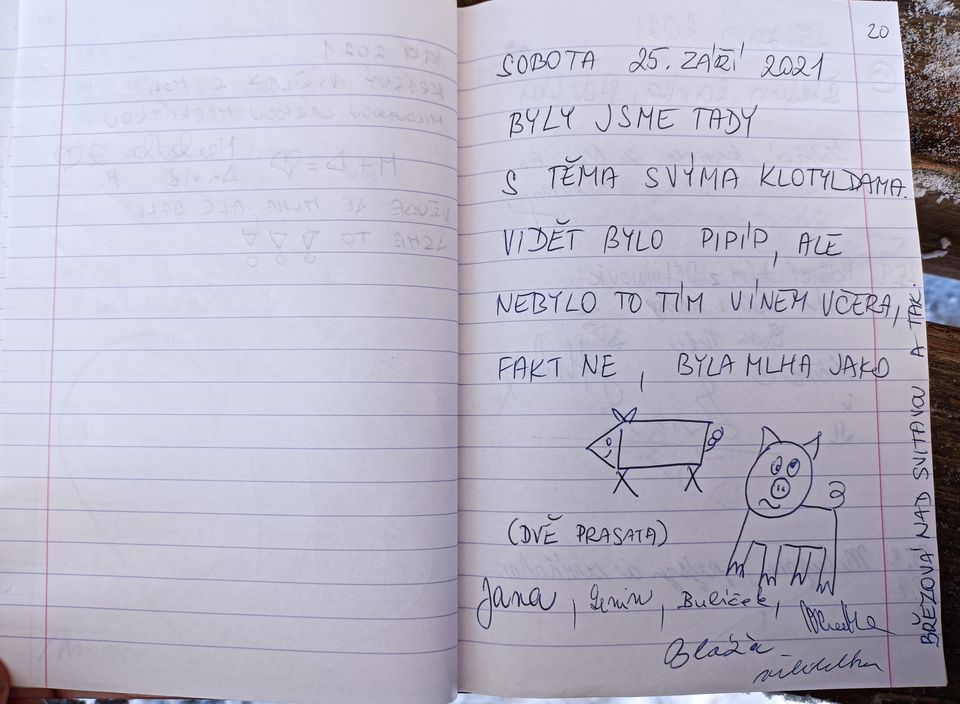 20
SOBOTA 25. ZÁŘÍ 2021
BYLY JSME TADY
S TĚMA SVÝMA KLOTYLDAMA.
VIDĚT BYLO PIPÍP, ALE
NEBYLO TO TÍM VÍNEM VČERA,
FAKT NE, BYLA MLHA JAKO
(DVĚ PRASATA)
Jana, Buliček,
Bláža
BŘEZOVÁ NAD SVITAVOU A TAK.